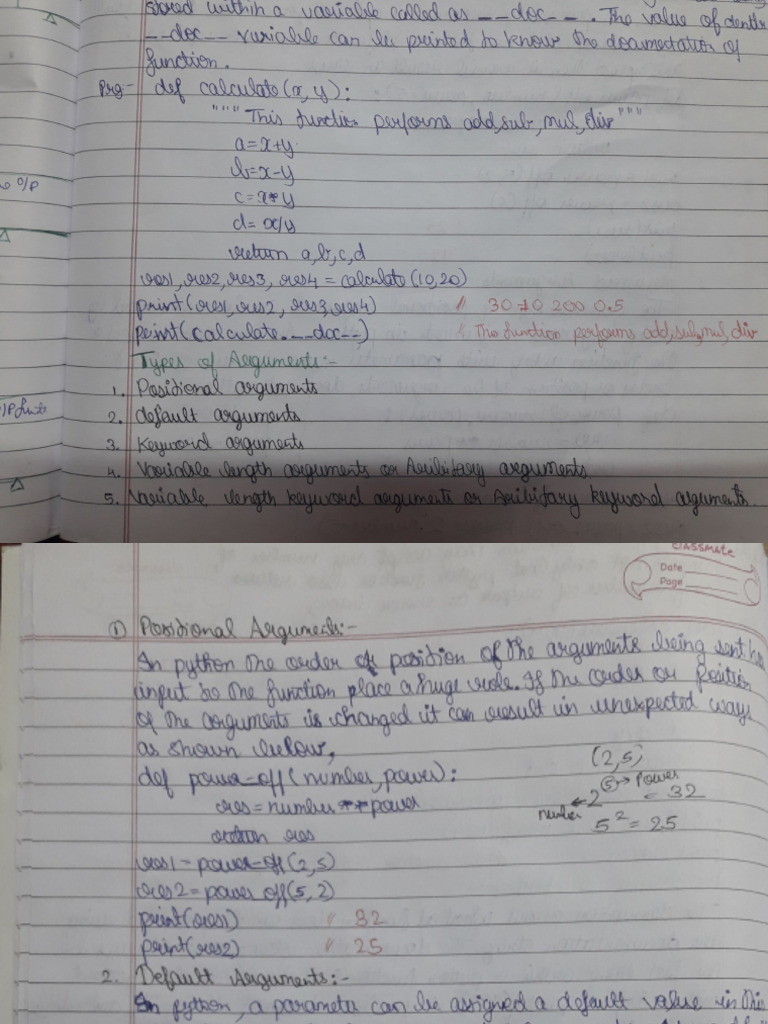 stored within a variable called as __doc__. The value of
__doc__ variable can be printed to know the documentation of
function.
Prg:- def calculate(x, y):
"""This function performs add,sub,mul,div"""
a=x+y
b=x-y
o/p
c=x*y
d=x/y
return a,b,c,d
res1,res2,res3,res4=calculate(10,20)
print(res1,res2,res3,res4) // 30 -10 200 0.5
print(calculate.__doc__) // The function performs add,sub,mul,div
Types of Arguments:-
1. Positional arguments
2. default arguments
3. Keyword arguments
4. Variable length arguments or Aribitary arguments
5. Variable length keyword arguments or Aribitary keyword arguments
classmate
Date
Page
① Positional Arguments:-
In python the order of position of the arguments being sent has
input to the function place a huge role. If the order or Position
of the arguments is changed it can result in unexpected way
as shown below,
(2,5)
def power_off(number,power):
5→Power
2 = 32
res=number**power
number
5² = 25
return res
res1=power_off(2,5)
res2=power_off(5,2)
print(res1) // 32
print(res2) // 25
2. Default Arguments:-
In python, a parameter can be assigned a default value in the